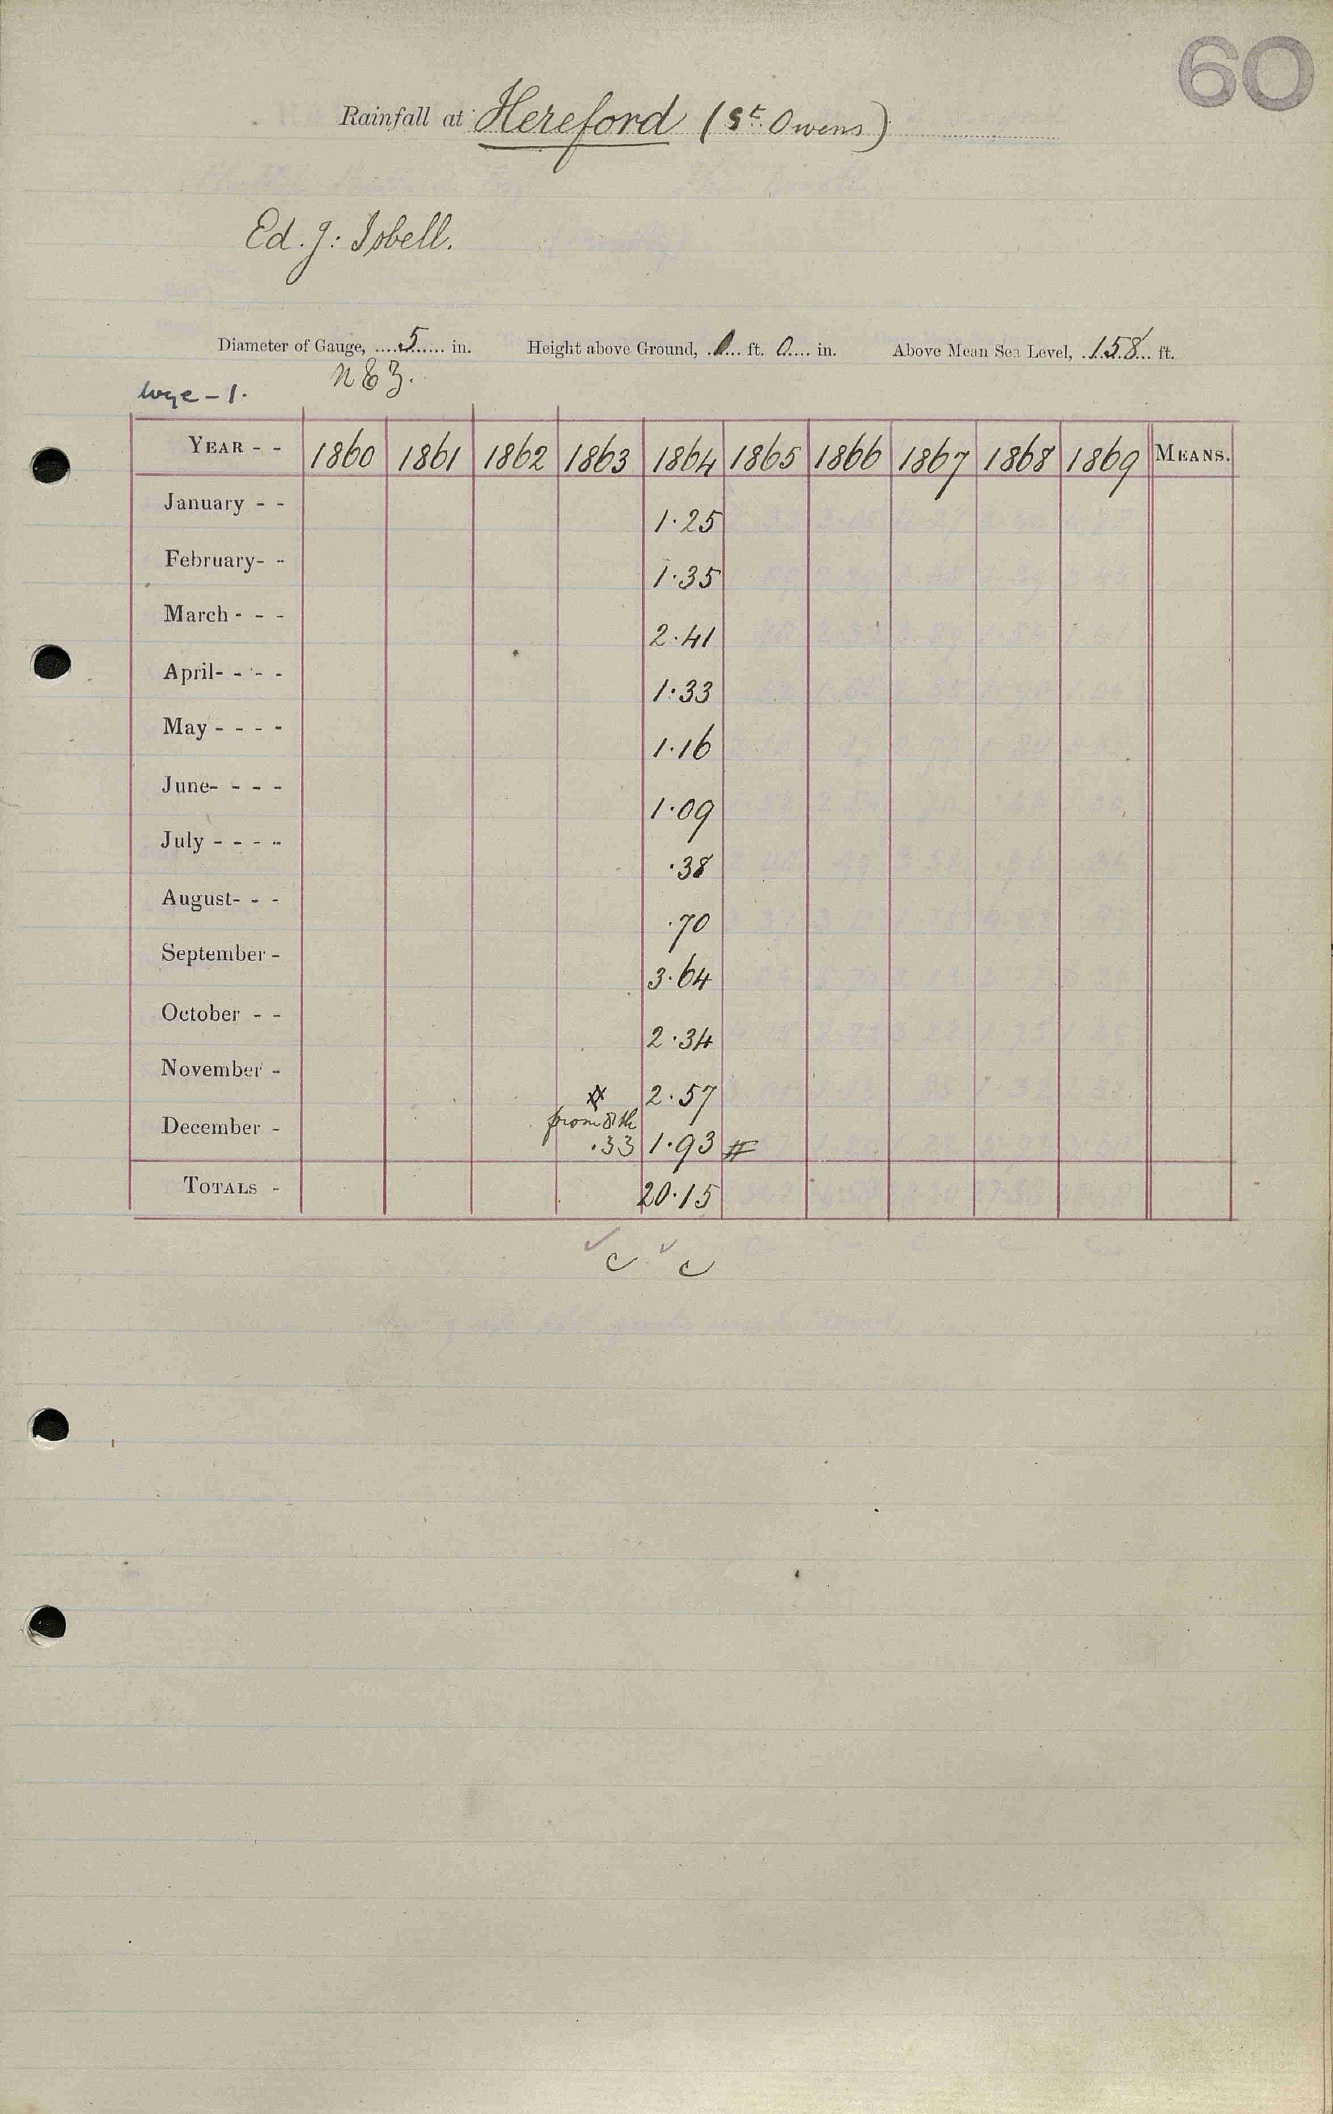 60
Rainfall at Hereford (St. Owens)
Ed. J: Isbell.
Diameter of Gauge, ....5...... in. Height above Ground, ..0.... ft. 0..... in. Above Mean Sea Level, ..158... ft.
Wye - 1.
YEAR - - 1860 1861 1862 1863 1864 1865 1866 1867 1868 1869 MEANS.
January - - 1.25
February- - 1.35
March - - - 2.41
April- - - - 1.33
May - - - - 1.16
June- - - - 1.09
July - - - - .38
August- - - .70
September - 3.64
October - - 2.34
November - 2.57
from 8th
December - .33 1.93
TOTALS - 20.15
c c